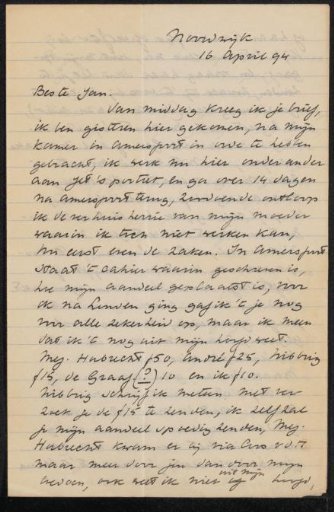 Noordwijk
16 April 94
Beste Jan.
Van middag kreeg ik je brief,
ik ben gisteren hier gekomen, na mijn
kamer in Amersfoort in orde te hebben
gebracht, ik werk nu hier onder ander
aan Jet's portret, en ga over 14 dagen
na Amersfoort terug, zoodoende ontloop
ik de verhuisherrie van mijn moeder
waarin ik toch niet werken kan,
Nu eerst even de zaken. In Amersfoort
staat 't cahier waarin geschreven is,
hoe mijn aandeel geplaatst is, voor
ik na Leuven ging gaf ik 't je nog
voor alle zekerheid op, maar ik meen
dat ik 't nog uit mijn hoofd weet.
Mej. Hubrecht f50, André f25, Wibbing
f15, de Graaf (?) 10 en ik f10.
Wibbing schrijf ik meteen met ver
zoek je de f15 te zenden, ik zelf zal
je mijn aandeel spoedig zenden, Mej.
Hubrecht kwam er bij via Cos
maar meer door jou dan door mijn
uit mijn
hoofd,